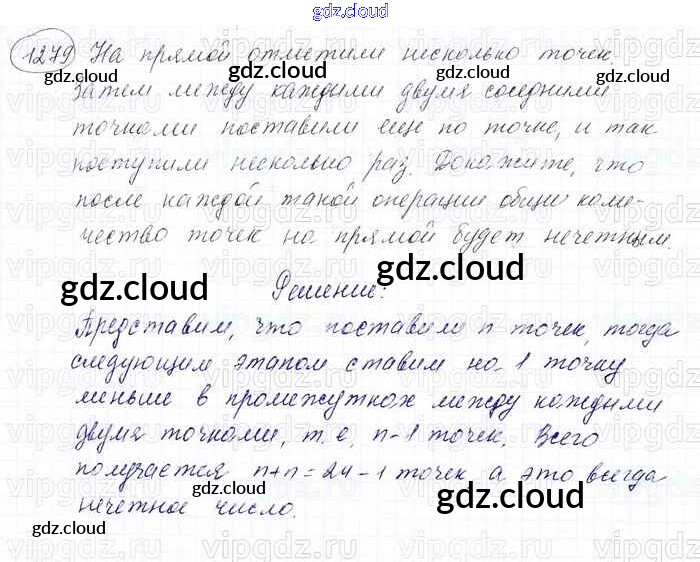 gdz.cloud
1279 На прямой отметили несколько точек.
Затем между каждыми двумя соседними
точками поставили еще по точке, и так
поступили несколько раз. Докажите, что
после каждой такой операции общее коли-
чество точек на прямой будет нечетным.
Решение:
Представим, что поставили n точек, тогда
следующим этапом ставим на 1 точку
меньше в промежутках между каждыми
двумя точками, т. е. n-1 точек. Всего
получается n+n=2n-1 точек а это всегда
нечетное число.